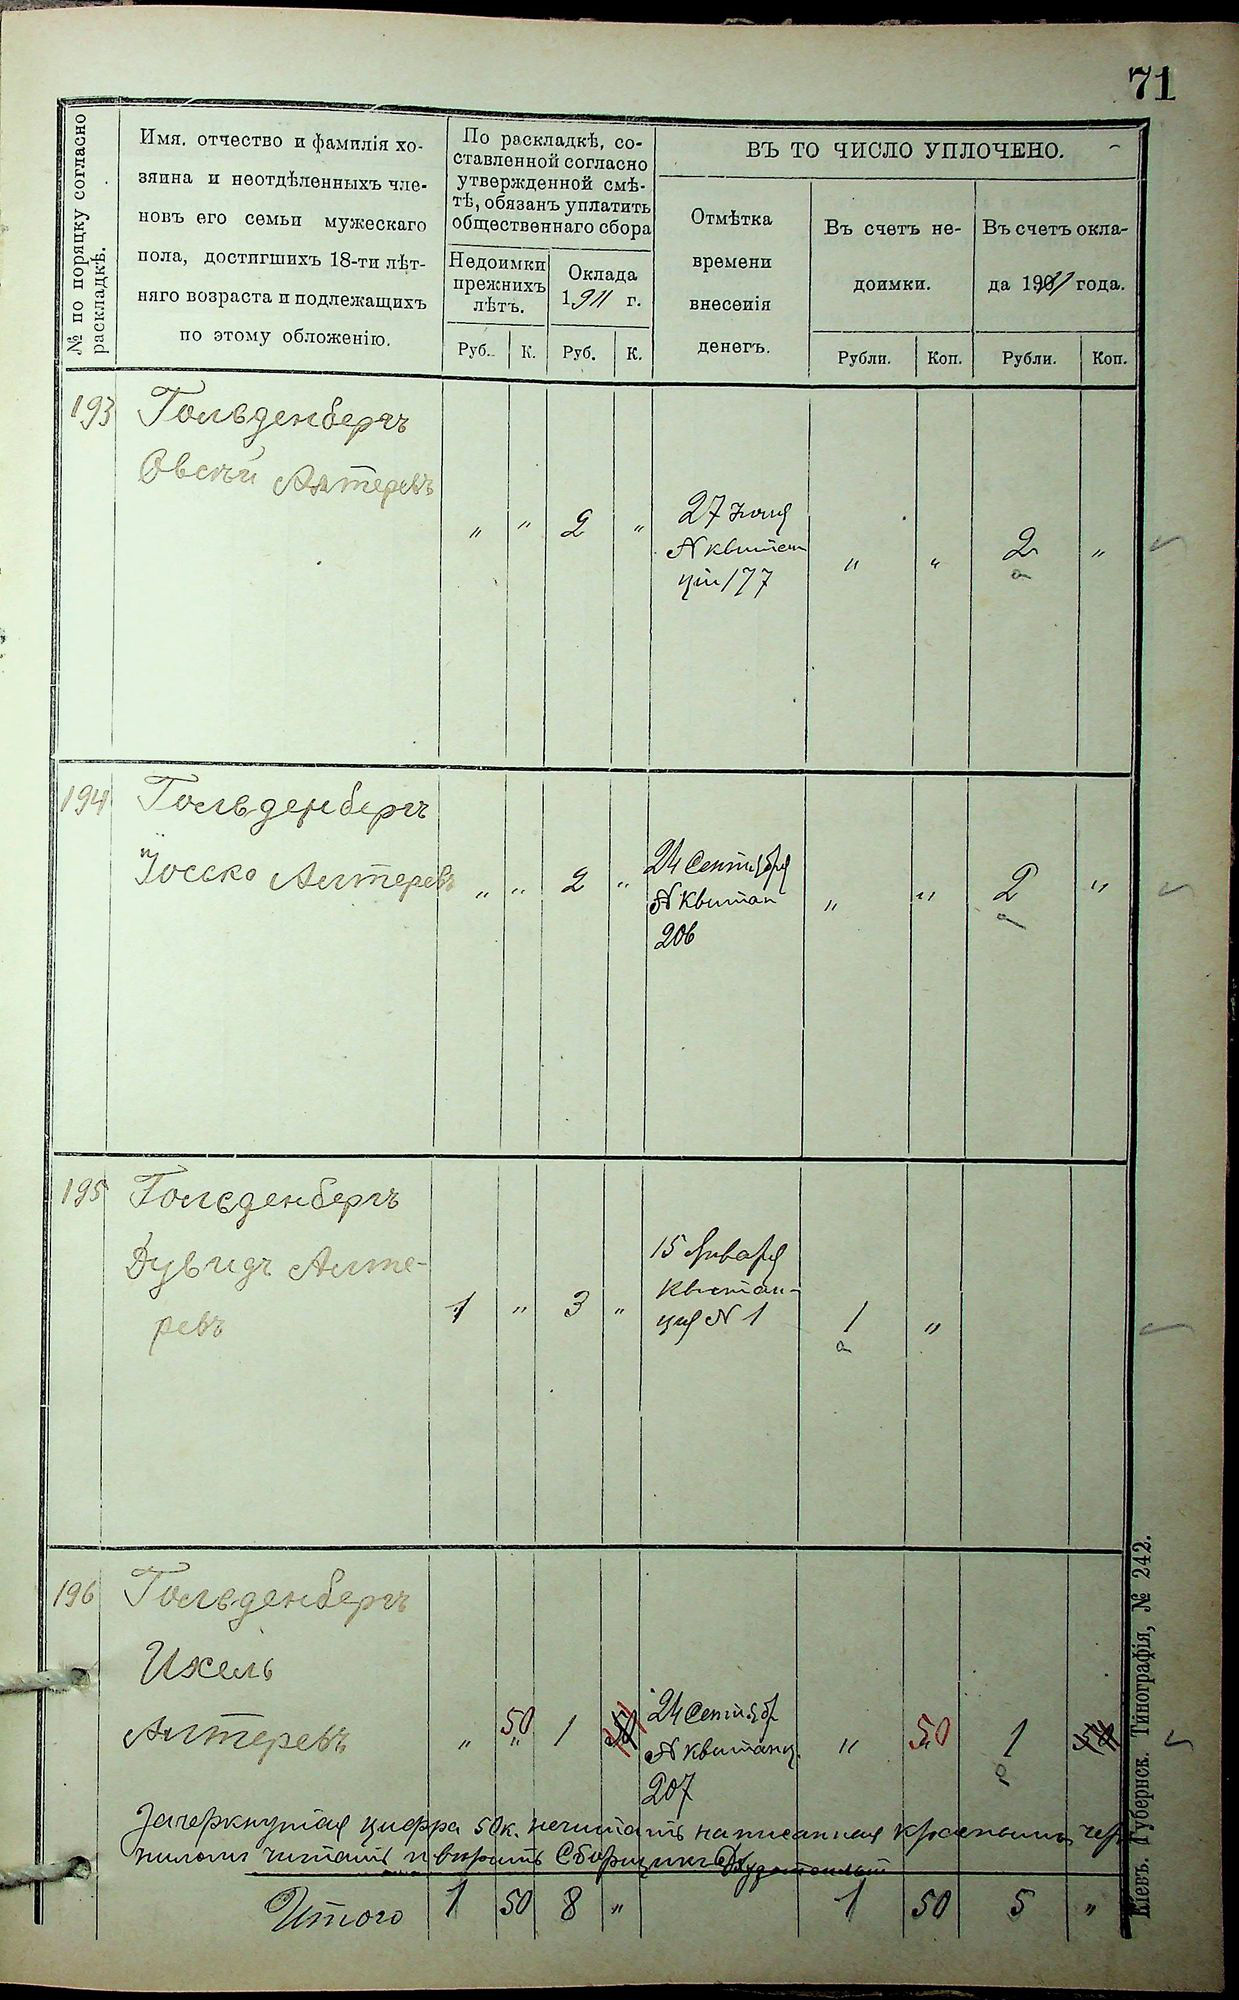 71
№ по поряцку согласно
раскладкѣ.
Имя, отчество и фамилія хо-
зяина и неотдѣленныхъ чле-
новъ его семьи мужескаго
пола, достигшихъ 18-ти лѣт-
няго возраста и подлежащихъ
по этому обложенію.
По раскладкѣ, со-
ставленной согласно
утвержденной смѣ-
тѣ, обязанъ уплатить
общественнаго сбора
Недоимки
прежнихъ
лѣтъ.
Оклада
1911 г.
Руб. К. Руб. К.
ВЪ ТО ЧИСЛО УПЛОЧЕНО.
Отмѣтка
времени
внесенія
денегъ.
Въ счетъ не-
доимки.
Въ счетъ окла-
да 1911 года.
Рубли. Коп. Рубли. Коп.
193 Гольденбергъ
Овсѣй Алтеревъ
" " 2 " 27 Юня
№ квитан
ціи 177
" " 2 "
194 Гольденбергъ
Іосско Алтеревъ
" " 2 " 24 Сентября
№ Квитан
206
" " 2 "
195 Гольденбергъ
Дувидъ Алте-
ревъ
1 " 3 " 15 Января
Квитан-
ция № 1
1 "
196 Гольденбергъ
Ихель
Алтеревъ
" 50 1 50 24 Сентябр
№ квитанц.
207
" 50 1 50
Зачеркнутая цифра 50к. нечитать написанная красными чер
нилами читать и вѣрить Сборщикъ
Итого 1 50 8 " 1 50 5 "
Кіевъ. Губернск. Типографія, № 242.